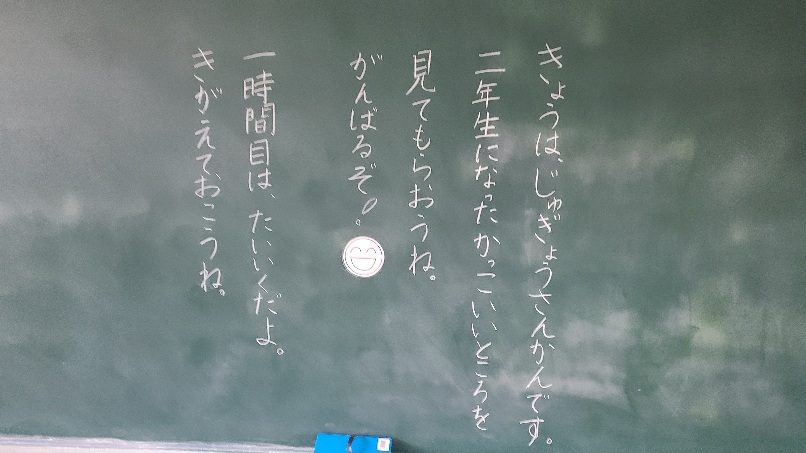 きょうは、じゅぎょうさんかんです。
二年生になったかっこいいところを
見てもらおうね。
がんばるぞ!。
一時間目は、たいいくだよ。
きがえておこうね。